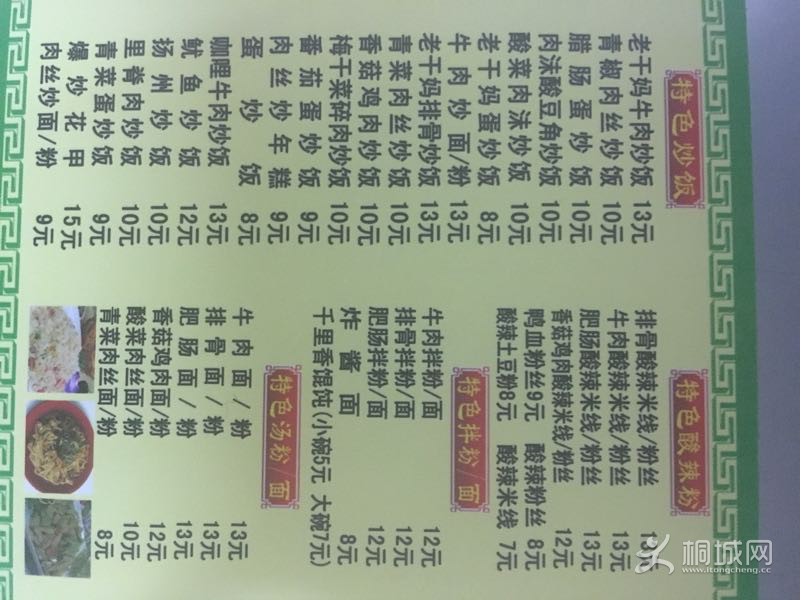 特色炒饭
老干妈牛肉炒饭 13元
青椒肉丝炒饭 10元
腊肠蛋炒饭 10元
肉沫酸豆角炒饭 10元
酸菜肉沫炒饭 10元
老干妈蛋炒饭 8元
牛肉炒面/粉 13元
老干妈排骨炒饭 13元
青菜肉丝炒饭 10元
香菇鸡肉炒饭 10元
梅干菜碎肉炒饭 10元
番茄蛋炒饭 9元
肉丝炒年糕 9元
蛋炒饭 8元
咖喱牛肉炒饭 13元
鱿鱼炒饭 12元
扬州炒饭 10元
里脊肉炒饭 10元
青菜蛋炒饭 9元
爆炒花甲 15元
肉丝炒面/粉 9元
特色酸辣粉
排骨酸辣米线/粉丝 13元
牛肉酸辣米线/粉丝 13元
肥肠酸辣米线/粉丝 13元
香菇鸡肉酸辣米线/粉丝 12元
鸭血粉丝9元 酸辣粉丝 8元
酸辣土豆粉8元 酸辣米线 7元
特色拌粉/面
牛肉拌粉/面 12元
排骨拌粉/面 12元
肥肠拌粉/面 12元
炸酱面 8元
千里香馄饨(小碗5元 大碗7元)
特色汤粉/面
牛肉面/粉 13元
排骨面/粉 13元
肥肠面/粉 13元
香菇鸡肉面/粉 12元
酸菜肉丝面/粉 10元
青菜肉丝面/粉 8元
桐城网
www.itongcheng.cc